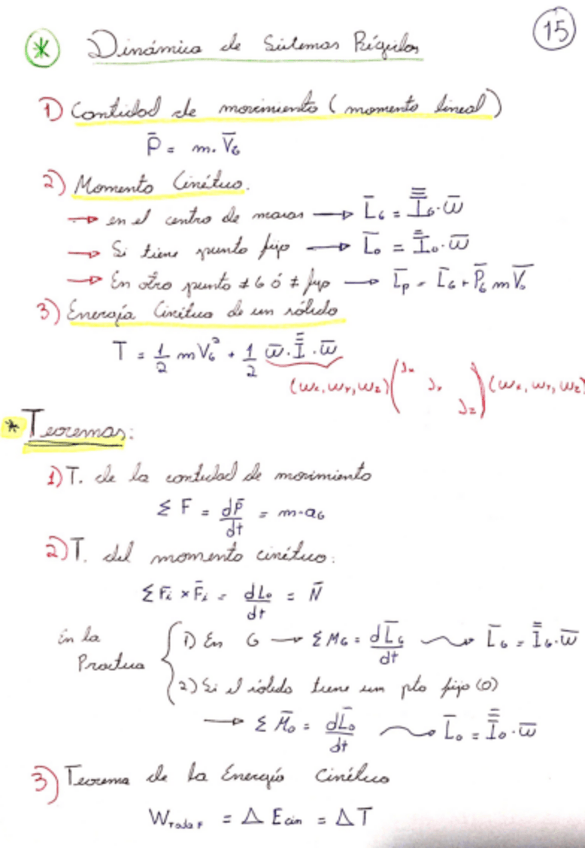 15
* Dinámica de Sistemas Rígidos
1) Cantidad de movimiento (momento lineal)
P̄ = m. V̄G
2) Momento Cinético.
→ en el centro de masas → L̄G = I̿G·ω̄
→ Si tiene punto fijo → L̄o = I̿o·ω̄
→ En otro punto ≠ G ó ≠ fijo → L̄p = L̄G + P̄G m V̄
3) Energía Cinética de un sólido
T = 1/2 m VG² + 1/2 ω̄·I̿·ω̄
(ωx, ωy, ωz) (Jx Jy Jz) (ωx, ωy, ωz)
* Teoremas:
1) T. de la cantidad de movimiento
Σ F = dP̄/dt = m·aG
2) T. del momento cinético:
Σ r̄i × F̄i = dLo/dt = N̄
En la Practica
1) En G → Σ MG = dL̄G/dt ⇝ L̄G = I̿G·ω̄
2) Si el sólido tiene un pto fijo (O)
→ Σ M̄o = dL̄o/dt ⇝ L̄o = I̿o·ω̄
3) Teorema de la Energía Cinética
W todas F = Δ Ecin = ΔT